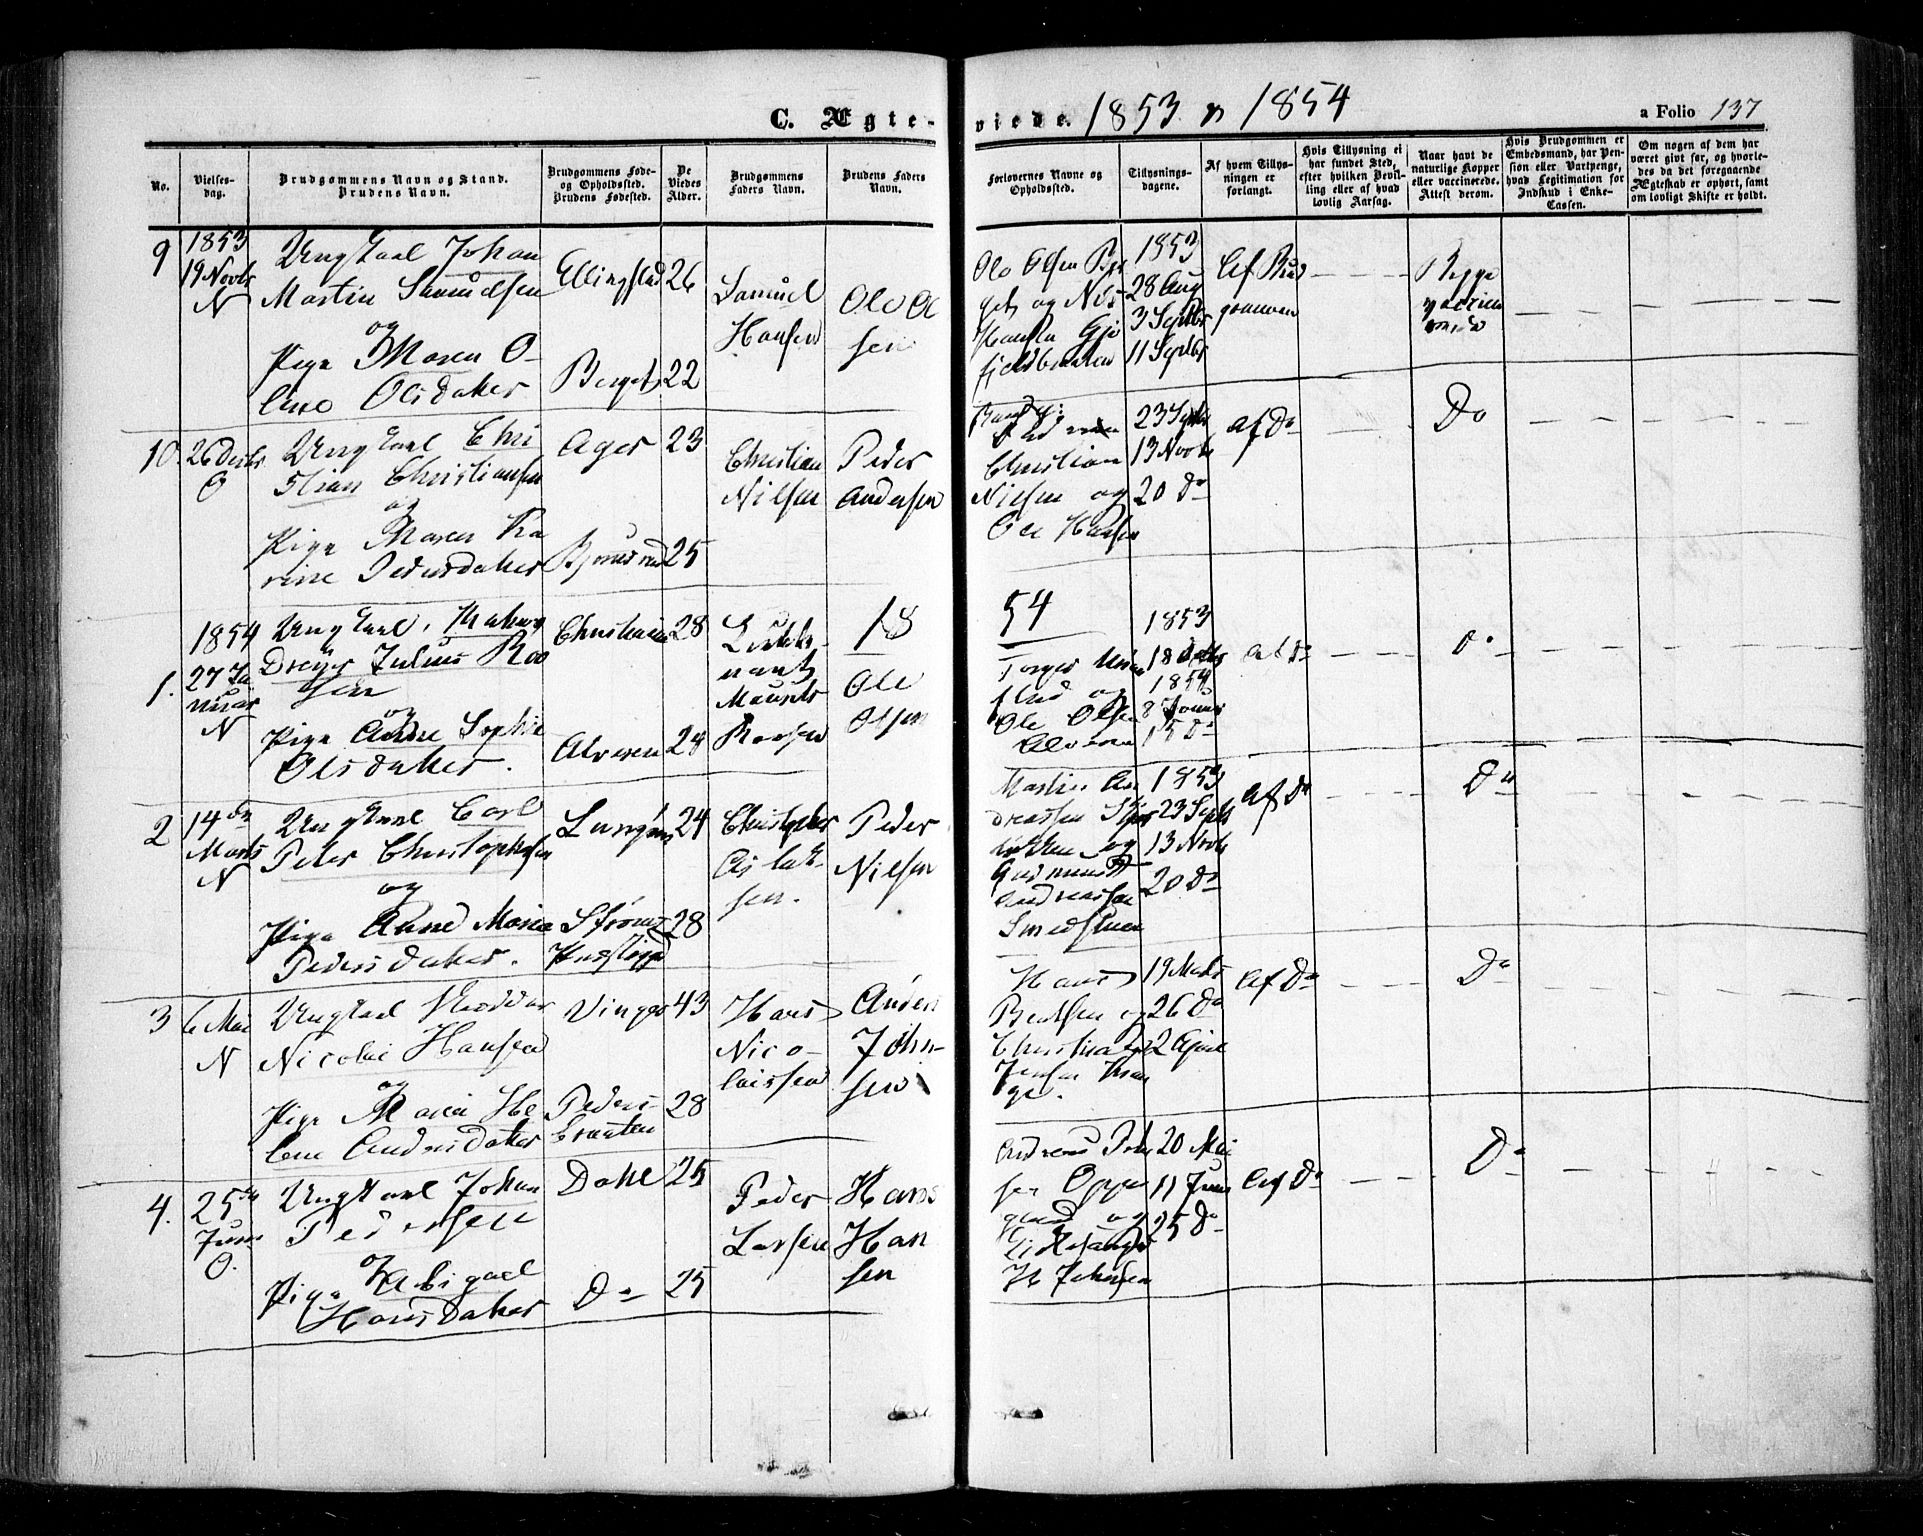 C. Ægte-
viede. 1853 n 1854
a Folio 137
No.
Vielses-
dag.
Brudgommens Navn og Stand.
Brudens Navn.
Brudgommens Føde-
og Opholdssted.
Brudens Fødested.
De
Viedes
Alder.
Brudgommens
Faders Navn.
Brudens Faders
Navn.
Forlovernes Navne og
Opholdssted.
Tillysnings-
dagene.
Af hvem Tillys-
ningen er
forlangt.
Hvis Tillysning ei
har fundet Sted,
efter hvilken Bevil-
ling eller af hvad
lovlig Aarsag.
Naar havt de
naturlige Kopper
eller vaccinerede.
Attest derom.
Hvis Brudgommen er
Embedsmand, har Pen-
sion eller Vartpenge,
hvad Legitimation for
Indskud i Enke-
Cassen.
Om nogen af dem har
været gift før, og hvorle-
des da det foregaaende
Ægteskab er ophørt, samt
om lovligt Skifte er holdt.
9
1853
19 Novbr
N
Ungkarl Johan
Martin Samuelsen
og
Pige Maren O-
line Olsdatter
Ellingstad
Berget
26
22
Samuel
Hansen
Ole Ol
sen
Ole Olsen Ber
get og Nils
Hansen
1853
28 Aug
3 Septbr
11 Septbr
Af Brud
gommen
Begge
vaccine
rede
10.
26 Decbr
O
Ungkarl Chri
stian Christiansen
og
Pige Maren Ka
rine Pedersdatter
Ager
23
25
Christian
Nilsen
Peder
Andersen
Christian
Nielsen og
Ole Hansen
23 Septbr
13 Novbr
20 Do
af Do
Do
1854
1.
27 Ja
nuar
N
Ungkarl
Dreyer Julius Roo
sen
og
Pige Anne Sophie
Olsdatter.
Christiania
Alveren
28
24
Lieute-
nant
Mourits
Roosen
18
Ole
Olsen
54
Torger
og
Ole Olsen
Alveren
1853
18
1854
8 Januar
15 Do
af Do
Do
2
14de
Marts
N
Ungkarl Carl
Peter Christophersen
og
Pige Anne Maria
Pedersdatter.
24
28
Christopher
Aslak-
sen.
Peder
Nilsen
Martin An
dreassen
og
Gudmund
Andreassen
Smedstuen
1853
23 Septb
13 Novbr
20 Do
af Do
Do
3
6 Mai
N
Ungkarl
Nicolai Hansen
og
Pige Maria He
lene Andersdatter
Vinger
Peders-
braaten
43
28
Hans
Nico-
laissen
Anders
John-
sen
Hans
Berntsen og
19 Marts
26 Do
2 April
Af Do
Do
4.
25de
Juni
O.
Ungkarl Johan
Pedersen
og
Pige Abigael
Hansdatter
Dahl
Do
25
25
Peder
Larsen
Hans
Han
sen
Andreas
og
H Johnsen
20 Mai
11 Juni
25 Do
Af Do
Do